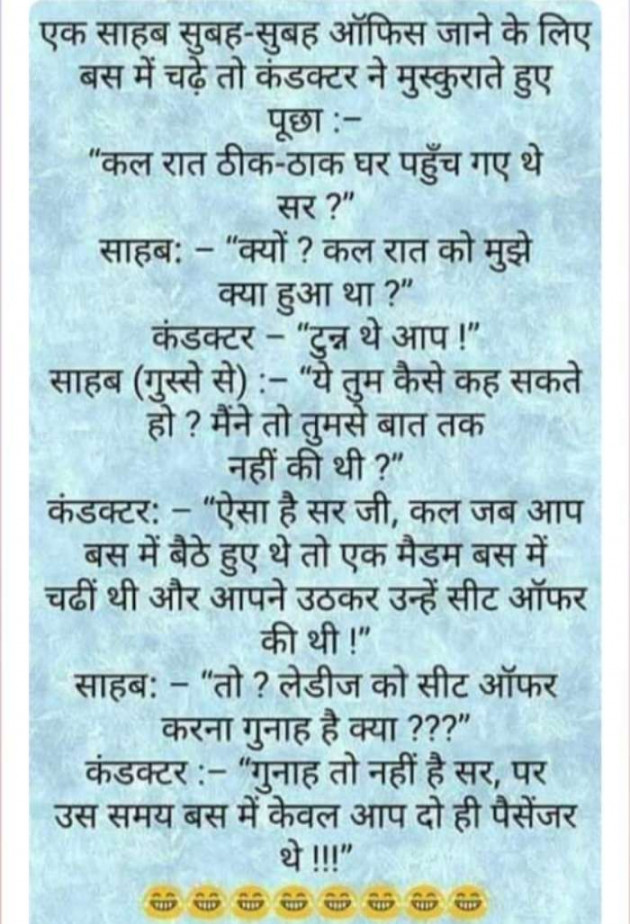 एक साहब सुबह-सुबह ऑफिस जाने के लिए
बस में चढ़े तो कंडक्टर ने मुस्कुराते हुए
पूछा :–
“कल रात ठीक-ठाक घर पहुँच गए थे
सर ?”
साहब: – “क्यों ? कल रात को मुझे
क्या हुआ था ?”
कंडक्टर – “टुन्न थे आप !”
साहब (गुस्से से) :– “ये तुम कैसे कह सकते
हो ? मैंने तो तुमसे बात तक
नहीं की थी ?”
कंडक्टर: – “ऐसा है सर जी, कल जब आप
बस में बैठे हुए थे तो एक मैडम बस में
चढीं थी और आपने उठकर उन्हें सीट ऑफर
की थी !”
साहब: – “तो ? लेडीज को सीट ऑफर
करना गुनाह है क्या ???”
कंडक्टर :– “गुनाह तो नहीं है सर, पर
उस समय बस में केवल आप दो ही पैसेंजर
थे !!!”
😂😂😂😂😂😂😂😂